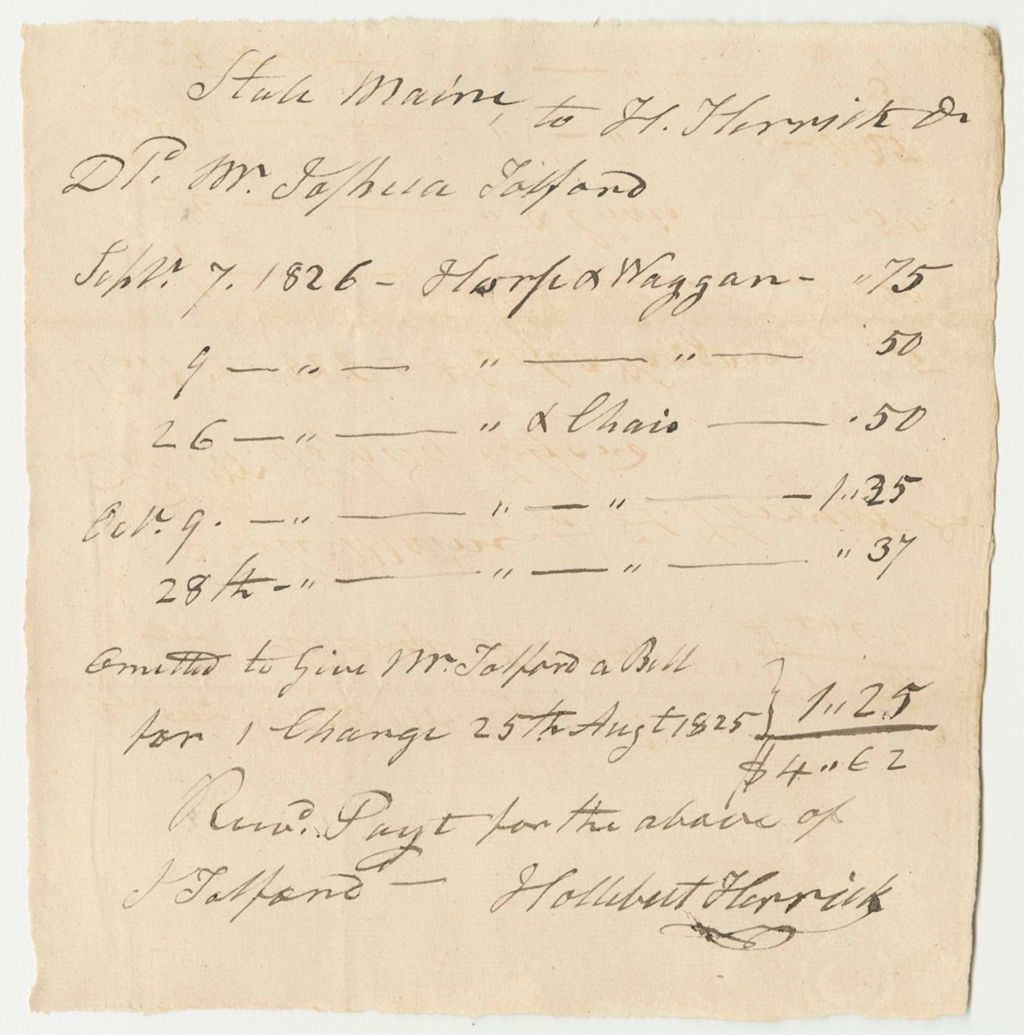 State Maine, to H. Herrick Dr
Dr. Mr. Joshua Tolford
Septr. 7. 1826 - Horse & Waggan - " 75
9 — " — " — " — 50
26 — " — " & Chais — " 50
Octr. 9. — " — " — " — 1 " 25
28th - " — " — " — " 37
Omitted to Give Mr. Tolford a Bill
for 1 Charge 25th Augt 1825 } 1 " 25
$ 4 " 62
Recvd. Payt for the above of
J Tolford — Hollibert Herrick